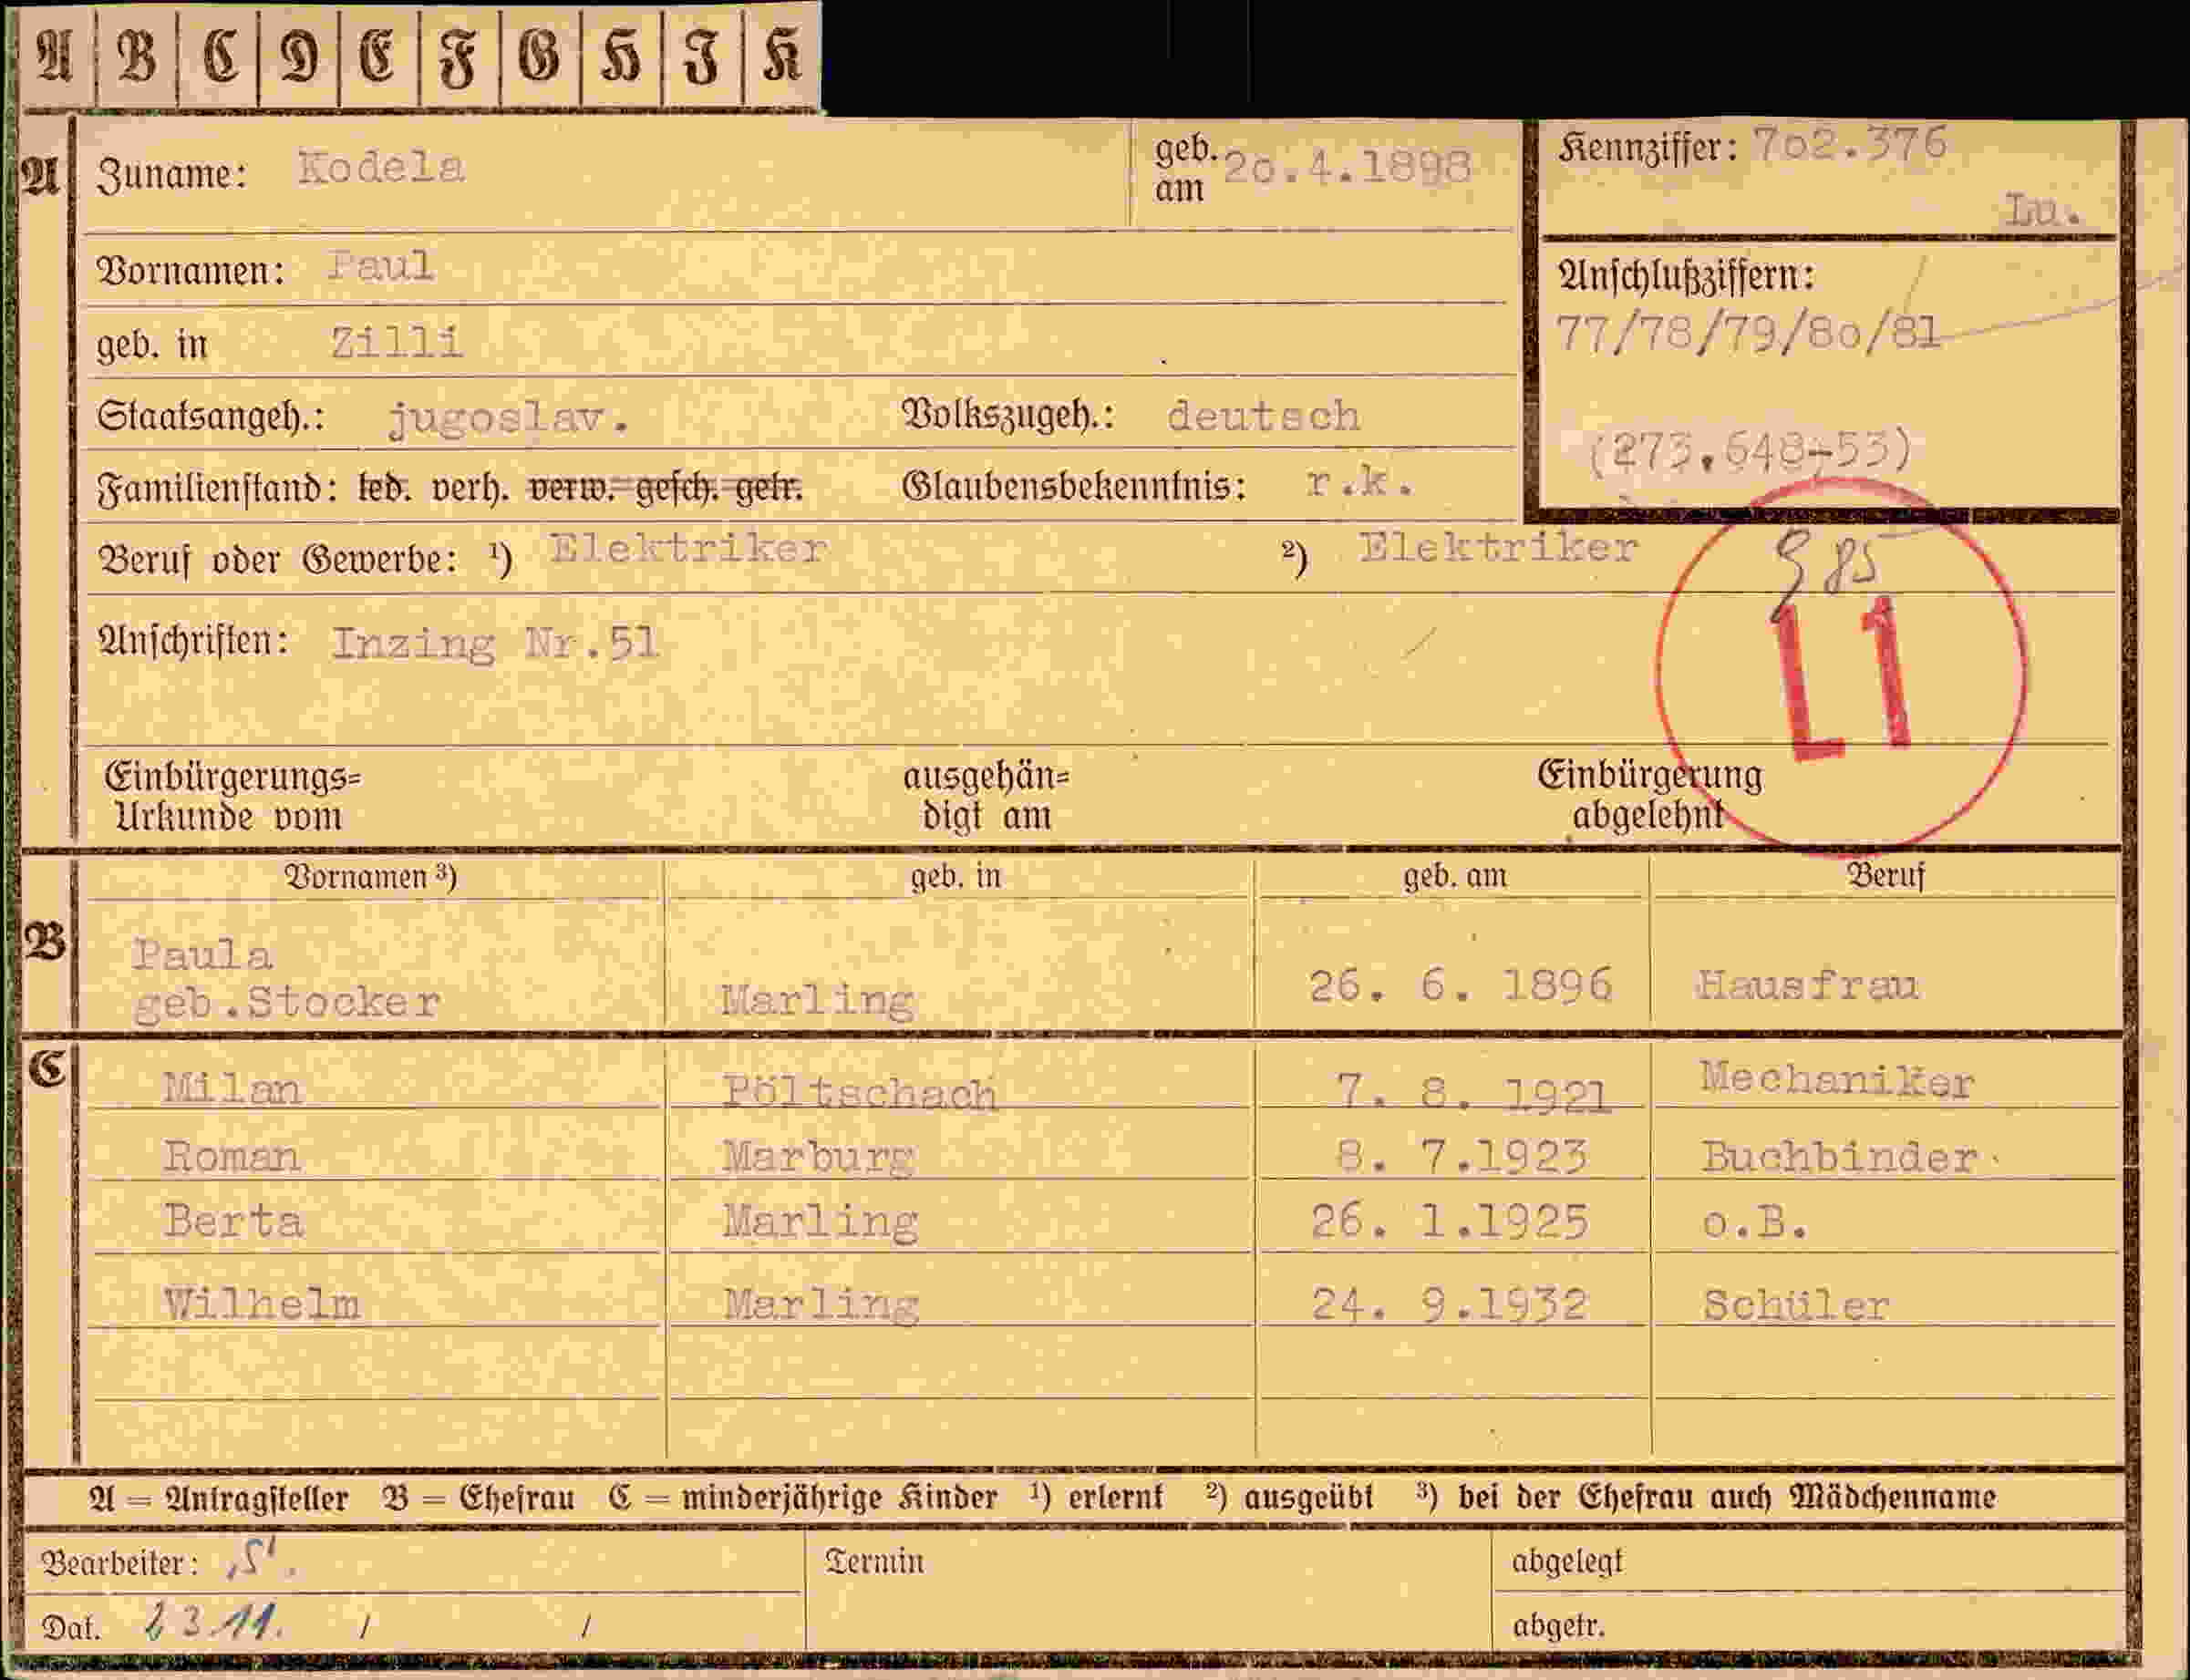 A B C D E F G H I K
A Zuname: Kodela geb. am 20.4.1898
Kennziffer: 702.376
Lu.
Vornamen: Paul
Anschlußziffern:
77/78/79/80/81
geb. in Zilli
Staatsangeh.: jugoslav. Volkszugeh.: deutsch
(273.648-53)
Familienstand: led. verh. verw. gesch. getr. Glaubensbekenntnis: r.k.
Beruf oder Gewerbe: ¹) Elektriker ²) Elektriker
85
L1
Anschriften: Inzing Nr.51
Einbürgerungs= ausgehän= Einbürgerung
Urkunde vom digt am abgelehnt
Vornamen ³) geb. in geb. am Beruf
B Paula
geb.Stocker Marling 26. 6. 1896 Hausfrau
C Milan Pöltschach 7. 8. 1921 Mechaniker
Roman Marburg 8. 7.1923 Buchbinder
Berta Marling 26. 1.1925 o.B.
Wilhelm Marling 24. 9.1932 Schüler
A = Antragsteller B = Ehefrau C = minderjährige Kinder ¹) erlernt ²) ausgeübt ³) bei der Ehefrau auch Mädchenname
Bearbeiter: S. Termin abgelegt
Dat. 23.11. / / abgetr.